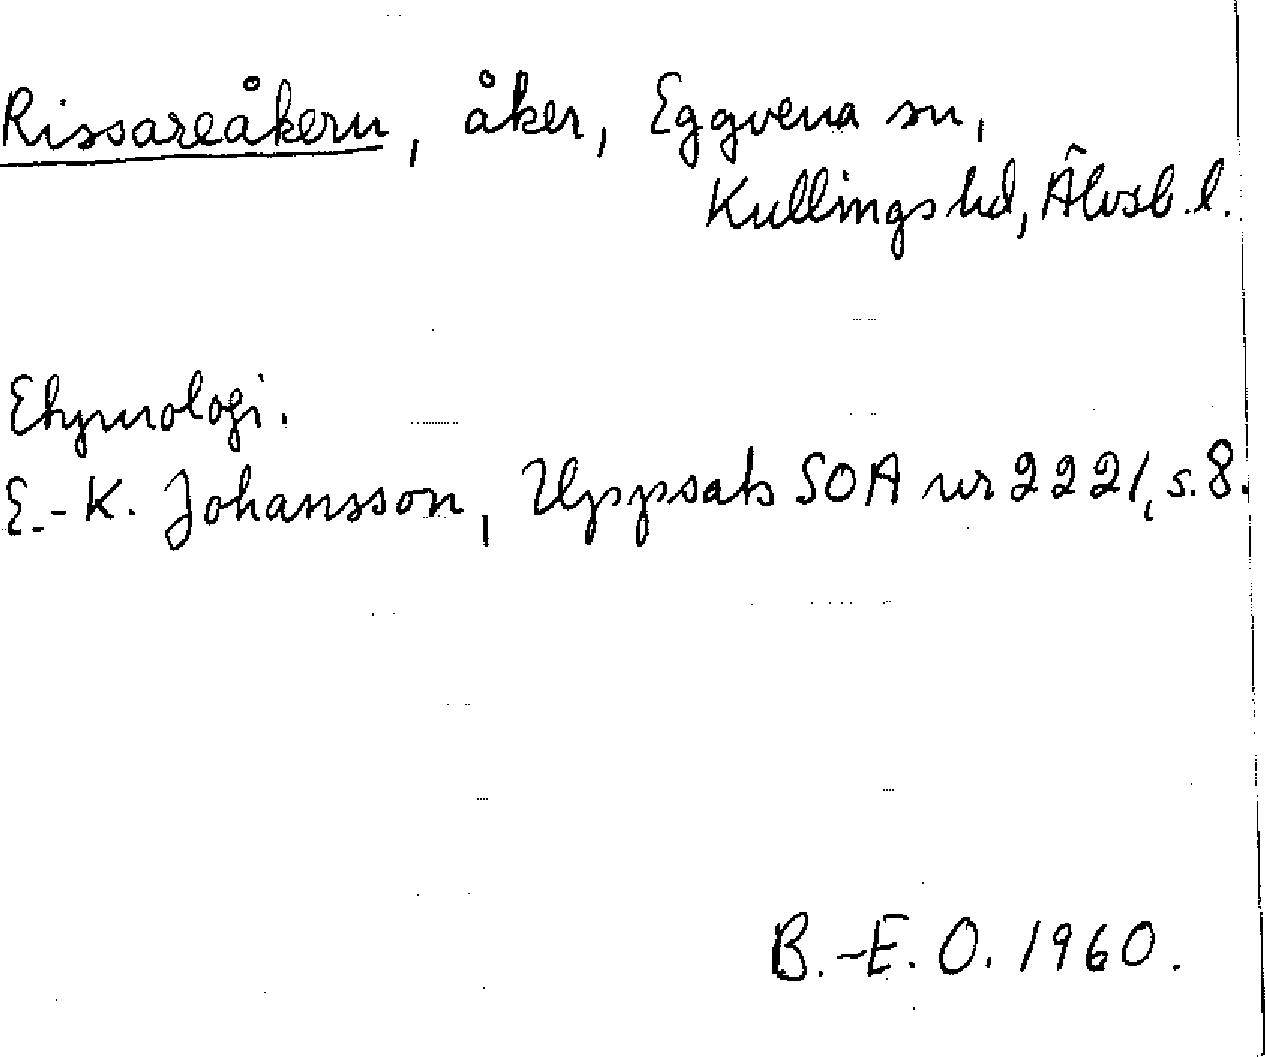 Rissareåkern, åker, Eggvena sn,
Kullings hd, Älvsb. l.
Etymologi.
E.-K. Johansson, Uppsats SOA nr 2221, s. 8.
B.-E. O. 1960.